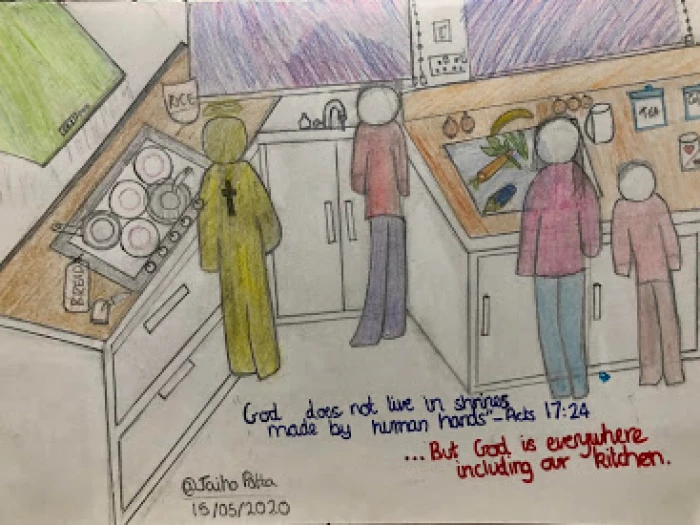 RICE
TEA
BREAD
God does not live in shrines
made by human hands"-Acts 17:24
...But God is everywhere
including our kitchen.
@Jaiho Patta
15/05/2020